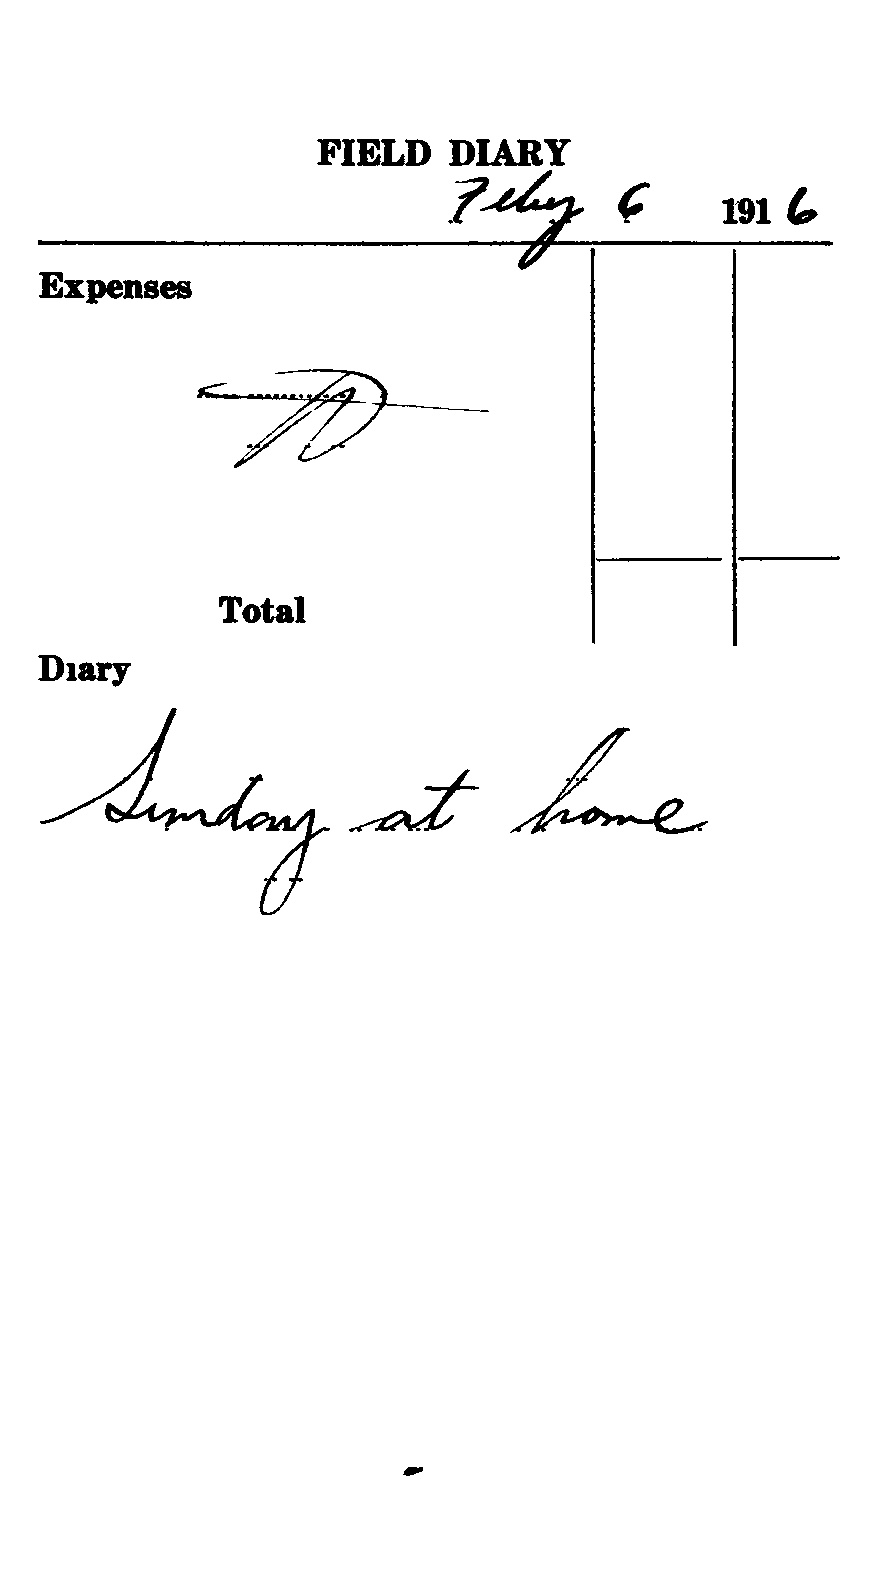 FIELD DIARY
Feby 6 1916
Expenses
Total
Diary
Sunday at home